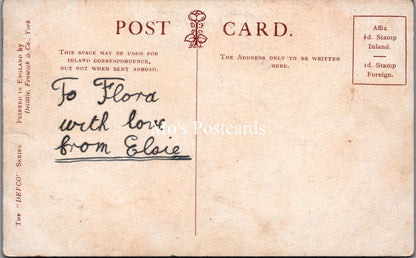 POST CARD.
THIS SPACE MAY BE USED FOR
INLAND CORRESPONDENCE,
BUT NOT WHEN SENT ABROAD.
THE ADDRESS ONLY TO BE WRITTEN
HERE.
Affix
½d. Stamp
Inland.
1d. Stamp
Foreign.
To Flora
with love
from Elsie
Mo's Postcards
THE "DEFCO" SERIES
PRINTED IN ENGLAND by
Delittle, Fenwick & Co., York.